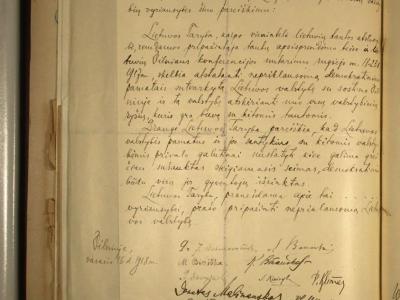 bių vyriausybes šiuo pareiškimu:
Lietuvos Taryba, kaipo vienintelė lietuvių tautos atstovy-
bė, remdamos pripažintąja tautų apsisprendimo teise ir lie-
tuvių Vilniaus konferencijos nutarimu rugsėjo m. 18-23 d.
1917 m., skelbia atstatanti nepriklausomą demokratiniais
pamatais sutvarkytą Lietuvos valstybę su sostine Vil-
niuje ir tą valstybę atskirianti nuo visų valstybinių
ryšių, kurie yra buvę su kitomis tautomis.
Drauge Lietuvos Taryba pareiškia, kad Lietuvos
valstybės pamatus ir jos santykius su kitomis valsty-
bėmis privalo galutinai nustatyti kiek galima grei-
čiau sušauktas steigiamasis seimas, demokratiniu
būdu visų jos gyventojų išrinktas.
Lietuvos Taryba, pranešdama apie tai
vyriausybei, prašo pripažinti nepriklausomą Lietu-
vos valstybę.
Vilniuje,
vasario 16 d. 1918 m.
J. Basanavičius S. Banaitis
M. Biržiška K. Bizauskas
P. Klimas
Donatas Malinauskas